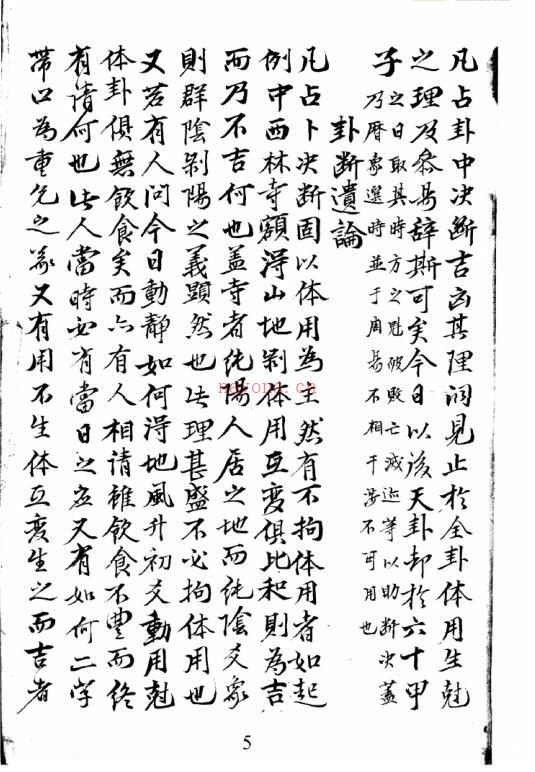 凡占卦中决断吉凶其理洞见止於全卦体用生尅
之理及叅易辞斯可矣今日以後天卦却於六十甲
子之日取其時方之魁破败亡滅迹等以助断决蓋
乃曆象選時並于周易不相干涉不可用也
卦断遺論
凡占卜决断固以体用為主然有不拘体用者如起
例中西林寺額淂山地剝体用互变俱比和則為吉
而乃不吉何也盖寺者纯陽人居之地而纯陰爻象
則群陰剝陽之義顕然也此理甚盛不必拘体用也
又若有人問今日動靜如何淂地風升初爻動用尅
体卦俱無飲食矣而亦有人相请雖飲食不豊而终
有请何也此人當時必有當日之应又有如何二字
带口為重兑之象又有用不生体互变生之而吉者
nayona.cn
5